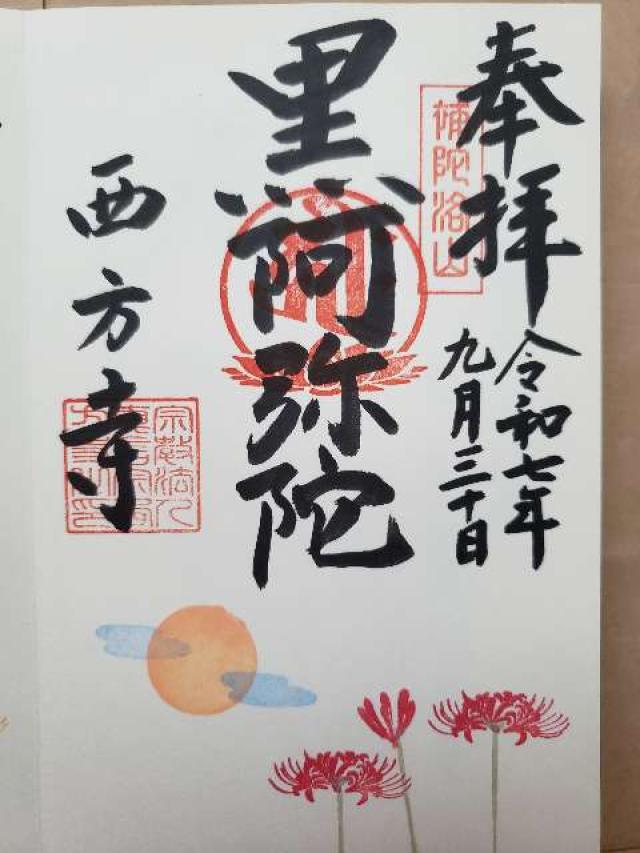 奉拝
令和七年
九月三十日
補陀洛山
黒阿弥陀
西方寺
宗教法人